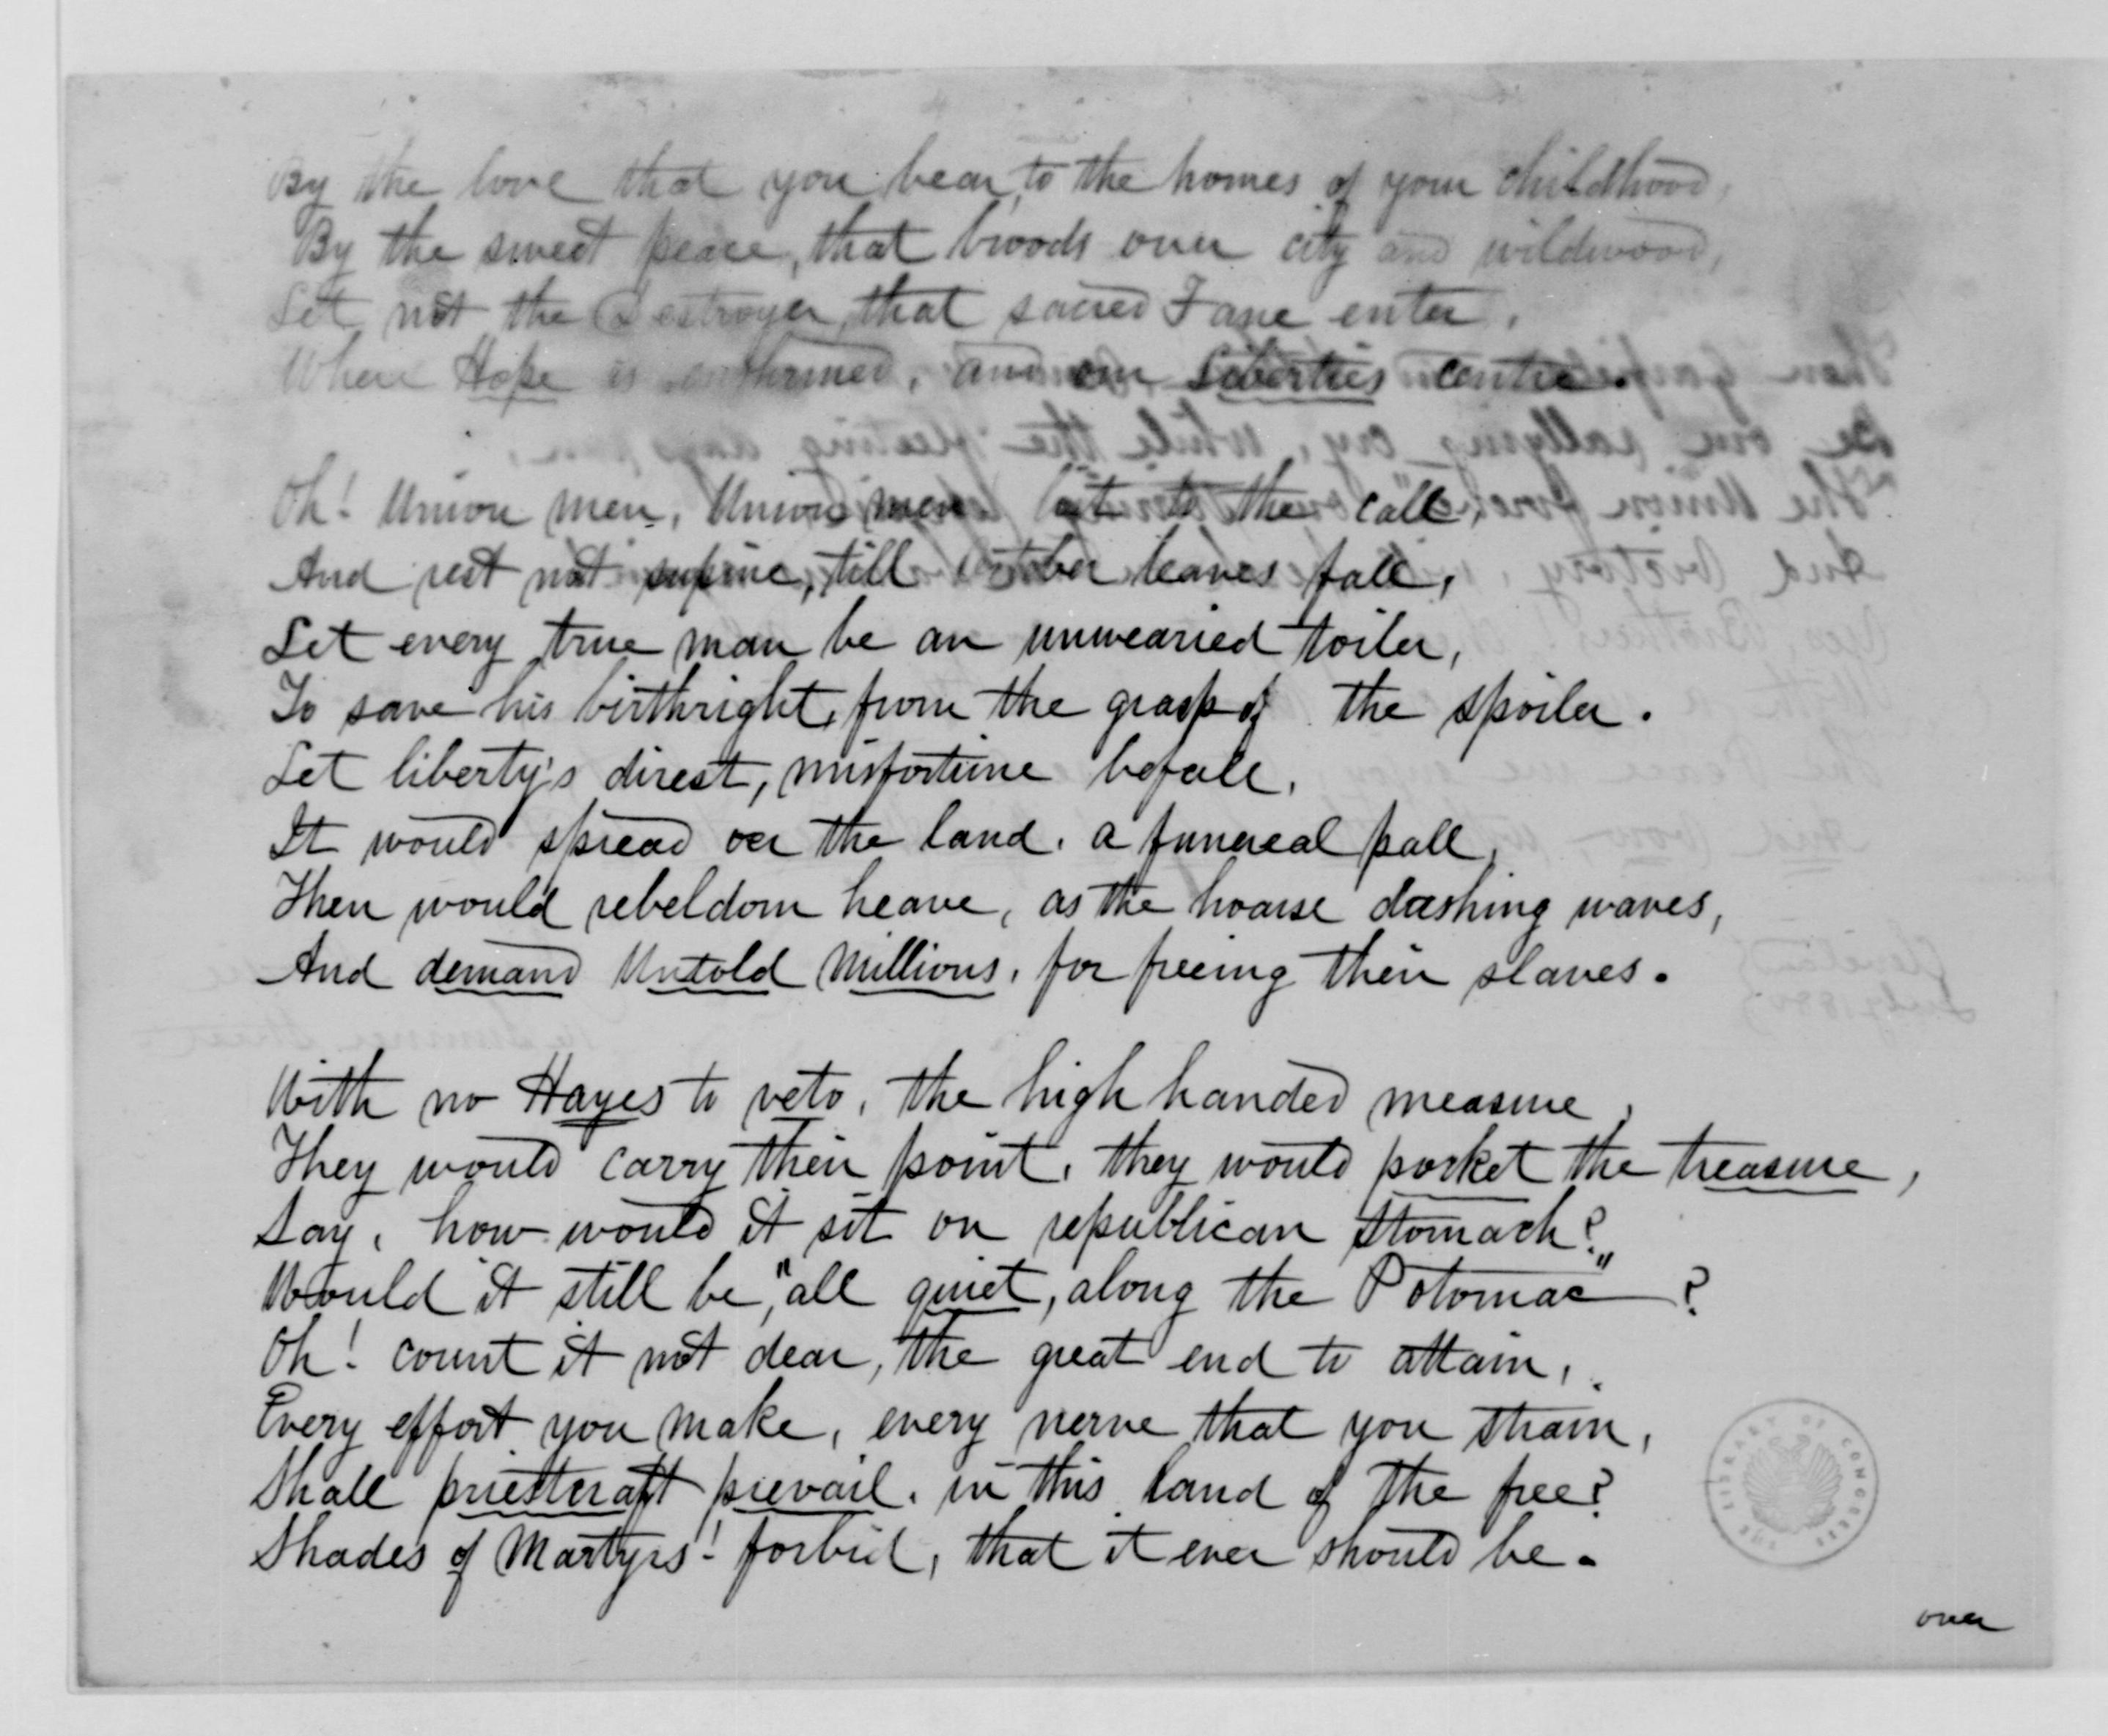 By the love that you bear, to the homes of your childhood,
By the sweet peace, that broods over city and wildwood,
Let not the Destroyer, that sacred Fane enter,
Where Hope is enshrined, and our Liberties centre.
Oh! Union men, Union men to the call,
And rest not supine, till October leaves fall,
Let every true man be an unwearied toiler,
To save his birthright, from the grasp of the spoiler.
Let liberty's direst, misfortune befall,
It would spread oer the land, a funereal pall,
Then would rebeldom heave, as the hoarse dashing waves,
And demand Untold Millions, for freeing their slaves.
With no Hayes to veto, the high handed measure,
They would carry their point, they would pocket the treasure,
Say, how would it sit on republican stomach?
Would it still be, "all quiet, along the Potomac" ?
Oh! count it not dear, the great end to attain,
Every effort you make, every nerve that you strain,
Shall priestcraft prevail, in this land of the free?
Shades of Martyrs! forbid, that it ever should be.
THE LIBRARY OF CONGRESS
over